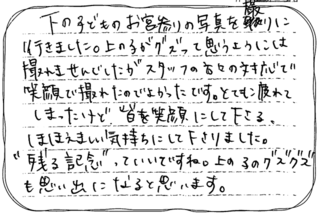 下の子どものお宮参りの写真を撮りに
行きました。上の子がグズって思うようには
撮れませんでしたがスタッフの方々の対応で
笑顔で撮れたのでよかったです。とても疲れて
しまったけど 皆を笑顔にして下さる、
ほほえましい気持ちにして下さりました。
"残る記念"っていいですね。上の子のグズグズ
も思い出になると思います。